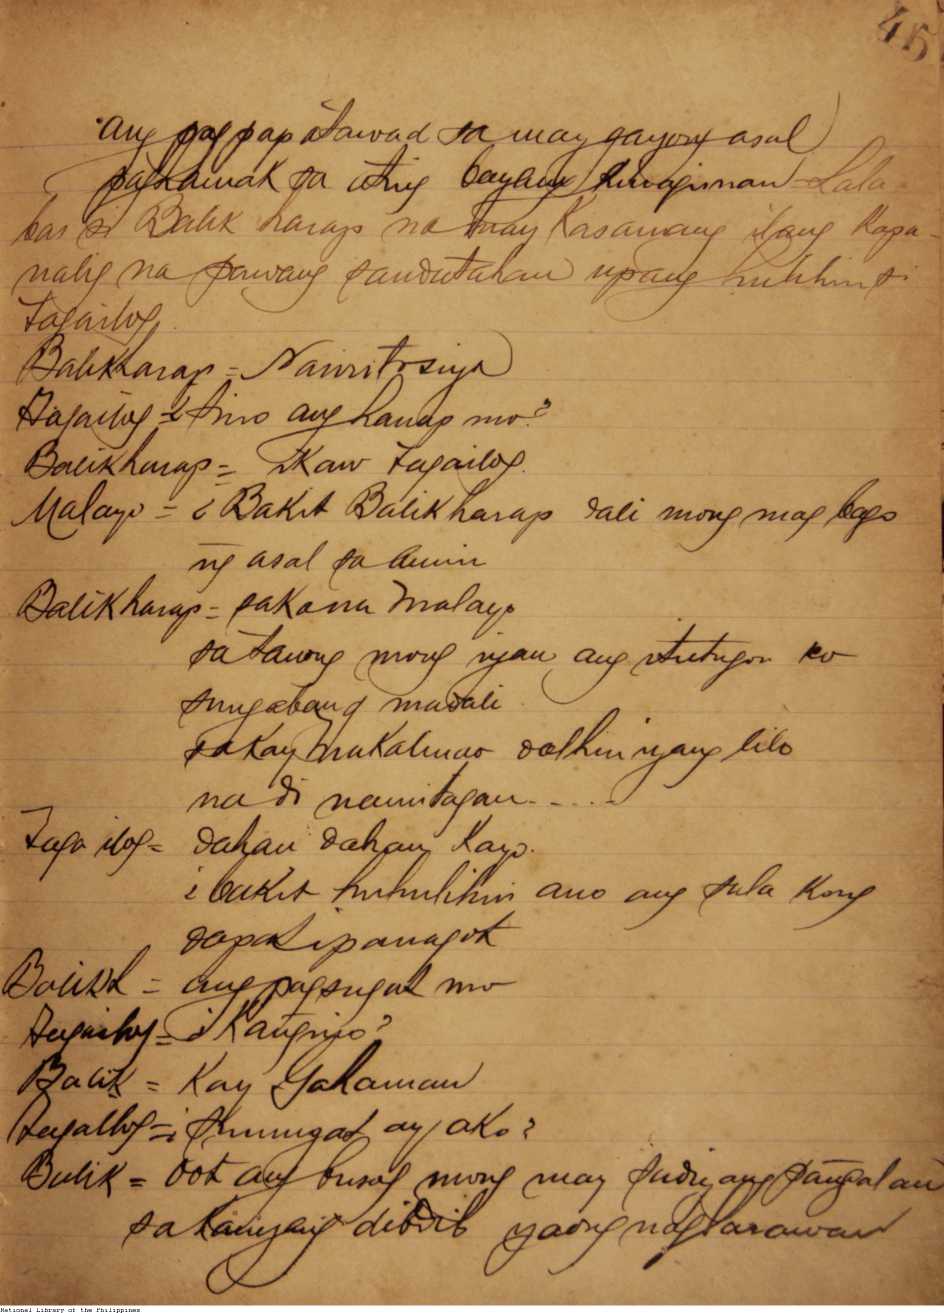 45
ang pag papatawad sa may gayong asal
paghamak sa ating bayang hinaguinan Lala
bas si Balik harap na may Kasamang ilang Kapa-
nalig na pawang sandatahan upang hulihin si
Tagailog.
Balikharap = Naririto siya
Tagailog = ¿Sino ang hanap mo?
Balikharap = Ikaw Tagailog.
Malayo = ¿Bakit Balikharap dali mong mag bago
ng asal sa amin
Balikharap = saka na Malayo
sa tanong mong iyan ang itutugon ko
madali
dalhin iyang lilo
na di namitagan.....
Taga ilog = dahan dahan Kayo.
¿bakit huhulihin ano ang sala Kong
dapat ipanagot
Balikh = ang pagsugat mo
Tagailog = ¿Kangino?
Balik = Kay Gahaman
Tagailog = ¿Sumugat ay ako?
Balik = Oot ang busog mong may
sa kaniyang dibdib yaong naglarawan
National Library of the Philippines